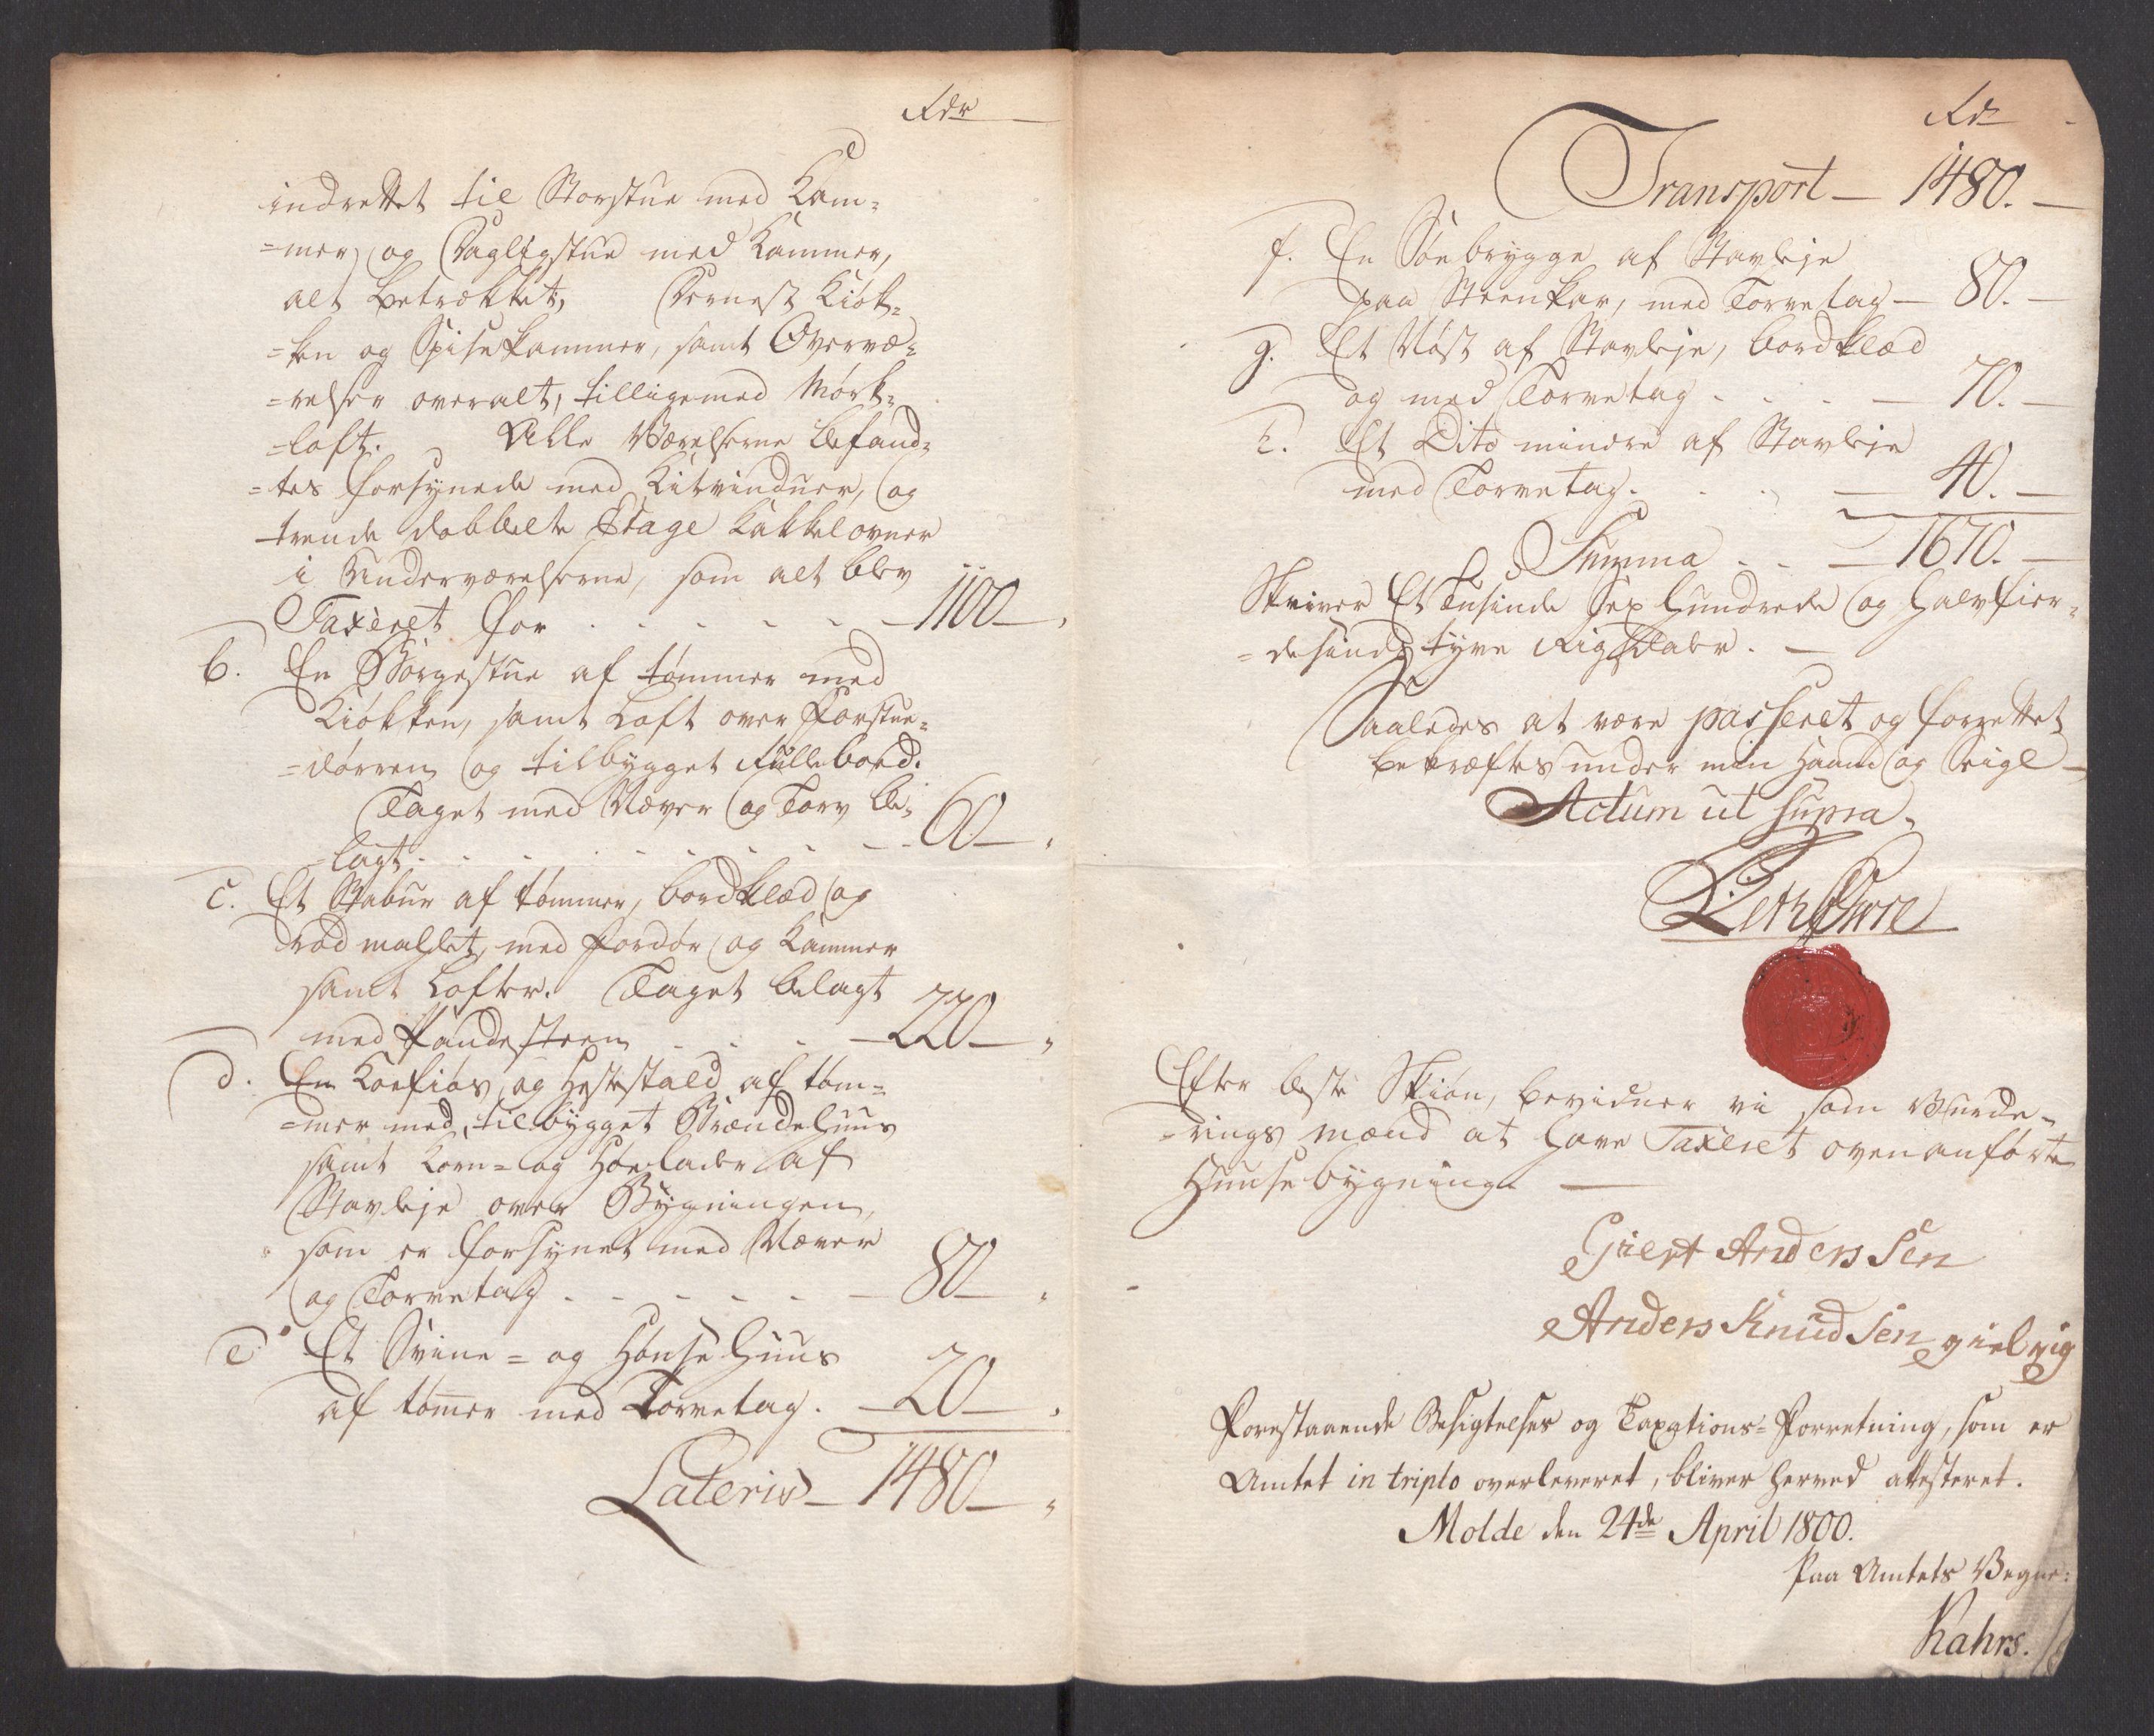 Rdr
indrettet til Storstue med Kam=
=mer, og Dagligstue med Kammer,
alt betrækket, Dernest Kiøk=
=ken og Spisekammer, samt Overvæ=
=relser overalt, tilligemed Mørk=
=loft. Alle Værelserne befand=
=tes forsynede med Kitvinduer, og
trende dobbelte Etage Kakkelovner
i Underværelserne, som alt blev
Taxeret for . . . . . . — 1100 —
b. En Borgestue af tømmer med
Kiøkken, samt Loft over Forstue=
=dørren og tilbygget Rullebord.
Taget med Næver og Torv be=
=lagt . . . . . . . . — 60 —
c. Et Stabur af tømmer, bordklæd og
rød mallet, med fordør og Kammer
samt Lofter. Taget belagt
med Pandesteen . . . — 220 —
d. En Koefiøs og Hestestald af tøm=
=mer med tilbygget Brændehuus
samt Korn= og Høelader af
Stavleje over Bygningen,
som er forsynet med Næver
og Torvetag . . . . . — 80 —
e. Et Svine= og Hønsehuus
af tømer med Torvetag. — 20 —
Lateris — 1480 —
Rdr
Transport — 1480. —
f. En Søebrygge af Stavleje
paa Steenkar, med Torvetag — 80. —
g. Et Nøst af Stavleje, bordklæd
og med Torvetag . . . — 70. —
h. Et Dito mindre af Stavleje
med Torvetag. . . — 40. —
Summa . . — 1670. —
Skriver Et Tusinde Sex Hundrede og Halvfier=
=desindstyve Rigsdaler. —
Saaledes at være passeret og forrettet
bekræftes under min Haand og Seigl —
Actum ut supra.
Efter beste Skiøn, bevidner vi som Vurde=
=rings mænd at have Taxeret ovenanførte
Huusebygning. —
Giert Anderssen
Anders Knudsen gielvig
Forestaaende Besigtelses og Taxations=Forretning, som er
Amtet in triplo overleveret, bliver herved attesteret.
Molde den 24de April 1800.
Paa Amtets Vegne:
Kahrs.